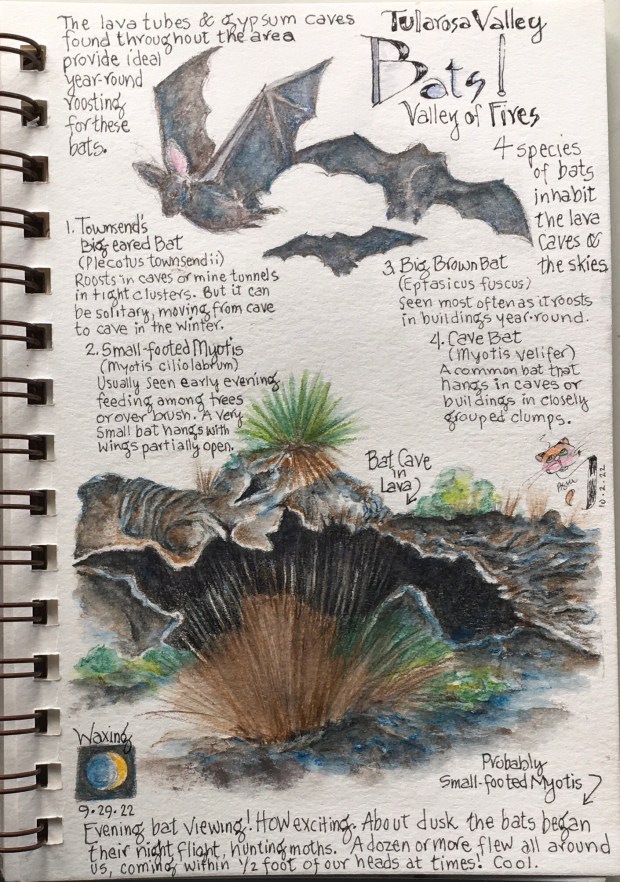 The lava tubes & gypsum caves
found throughout the area
provide ideal
year-round
roosting
for these
bats.
Tularosa Valley
Bats!
Valley of Fires
4 species
of bats
inhabit
the lava
caves &
the skies
1. Townsend's
Big eared Bat
(Plecotus townsendii)
Roosts in caves or mine tunnels
in tight clusters. But it can
be solitary, moving from cave
to cave in the winter.
2. Small-footed Myotis
(Myotis ciliolabrum)
Usually seen early evening
feeding among trees
or over brush. A very
small bat hangs with
wings partially open.
3. Big Brown Bat
(Eptasicus fuscus)
Seen most often as it roosts
in buildings year-round.
4. Cave Bat
(Myotis velifer)
A common bat that
hangs in caves or
buildings in closely
grouped clumps.
Bat Cave
in
Lava
10.2.22
Waxing
9.29.22
Probably
Small-footed Myotis
Evening bat viewing! How exciting. About dusk the bats began
their night flight, hunting moths. A dozen or more flew all around
us, coming within 1/2 foot of our heads at times! Cool.